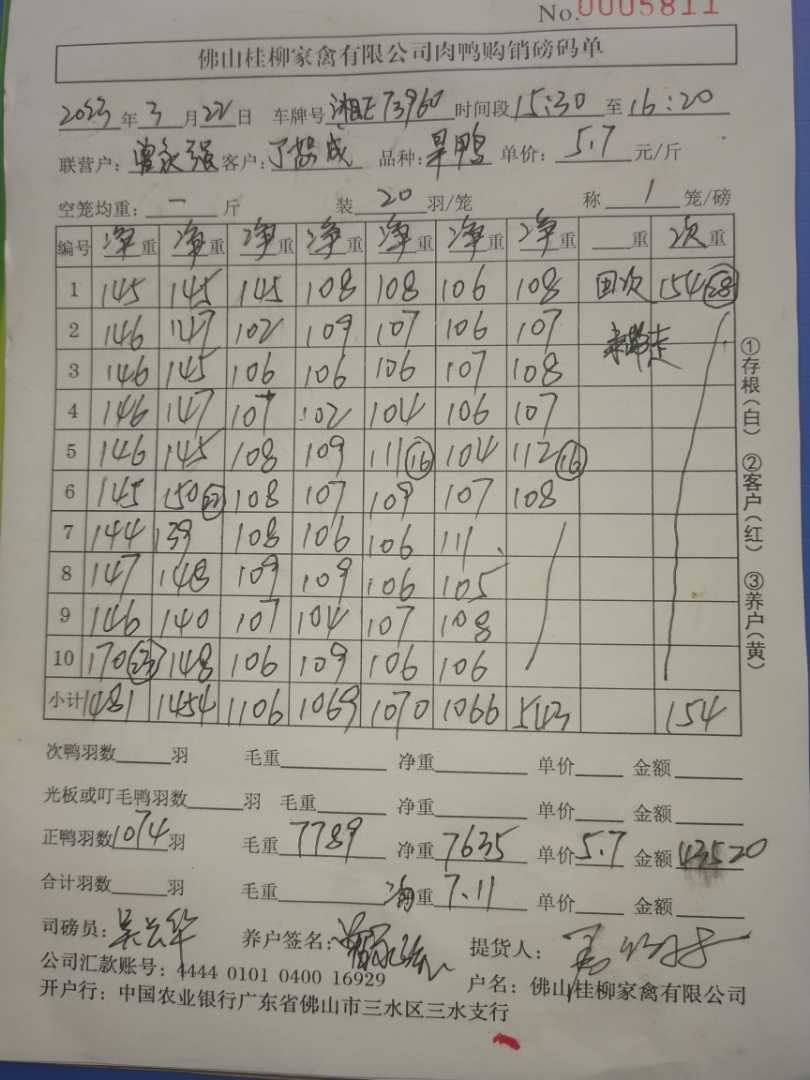 No.0005811
佛山桂柳家禽有限公司肉鸭购销磅码单
2023年3月22日 车牌号湘E73960 时间段15:30至16:20
联营户:曾永强 客户: 品种:旱鸭 单价:5.7元/斤
空笼均重:一斤 装20羽/笼 称1笼/磅
编号 净重 净重 净重 净重 净重 净重 净重 重 次重
1 145 145 145 108 108 106 108 回次 154(28)
2 146 147 102 109 107 106 107
3 146 145 106 106 106 107 108
4 146 147 107 102 104 106 107
5 146 145 108 109 111(16) 104 112(16)
6 145 150 108 107 109 107 108
7 144 139 108 106 106 111
8 147 148 109 109 106 105
9 146 140 107 104 107 108
10 170(23) 148 106 109 106 106
小计 1481 1454 1106 1069 1070 1066 543 154
次鸭羽数 羽 毛重 净重 单价 金额
光板或叮毛鸭羽数 羽 毛重 净重 单价 金额
正鸭羽数1074羽 毛重7789 净重7635 单价5.7 金额43520
合计羽数 羽 毛重 均重7.11 单价 金额
司磅员:吴云华 养户签名: 提货人:
公司汇款账号:4444 0101 0400 16929 户名:佛山桂柳家禽有限公司
开户行:中国农业银行广东省佛山市三水区三水支行
①存根(白) ②客户(红) ③养户(黄)